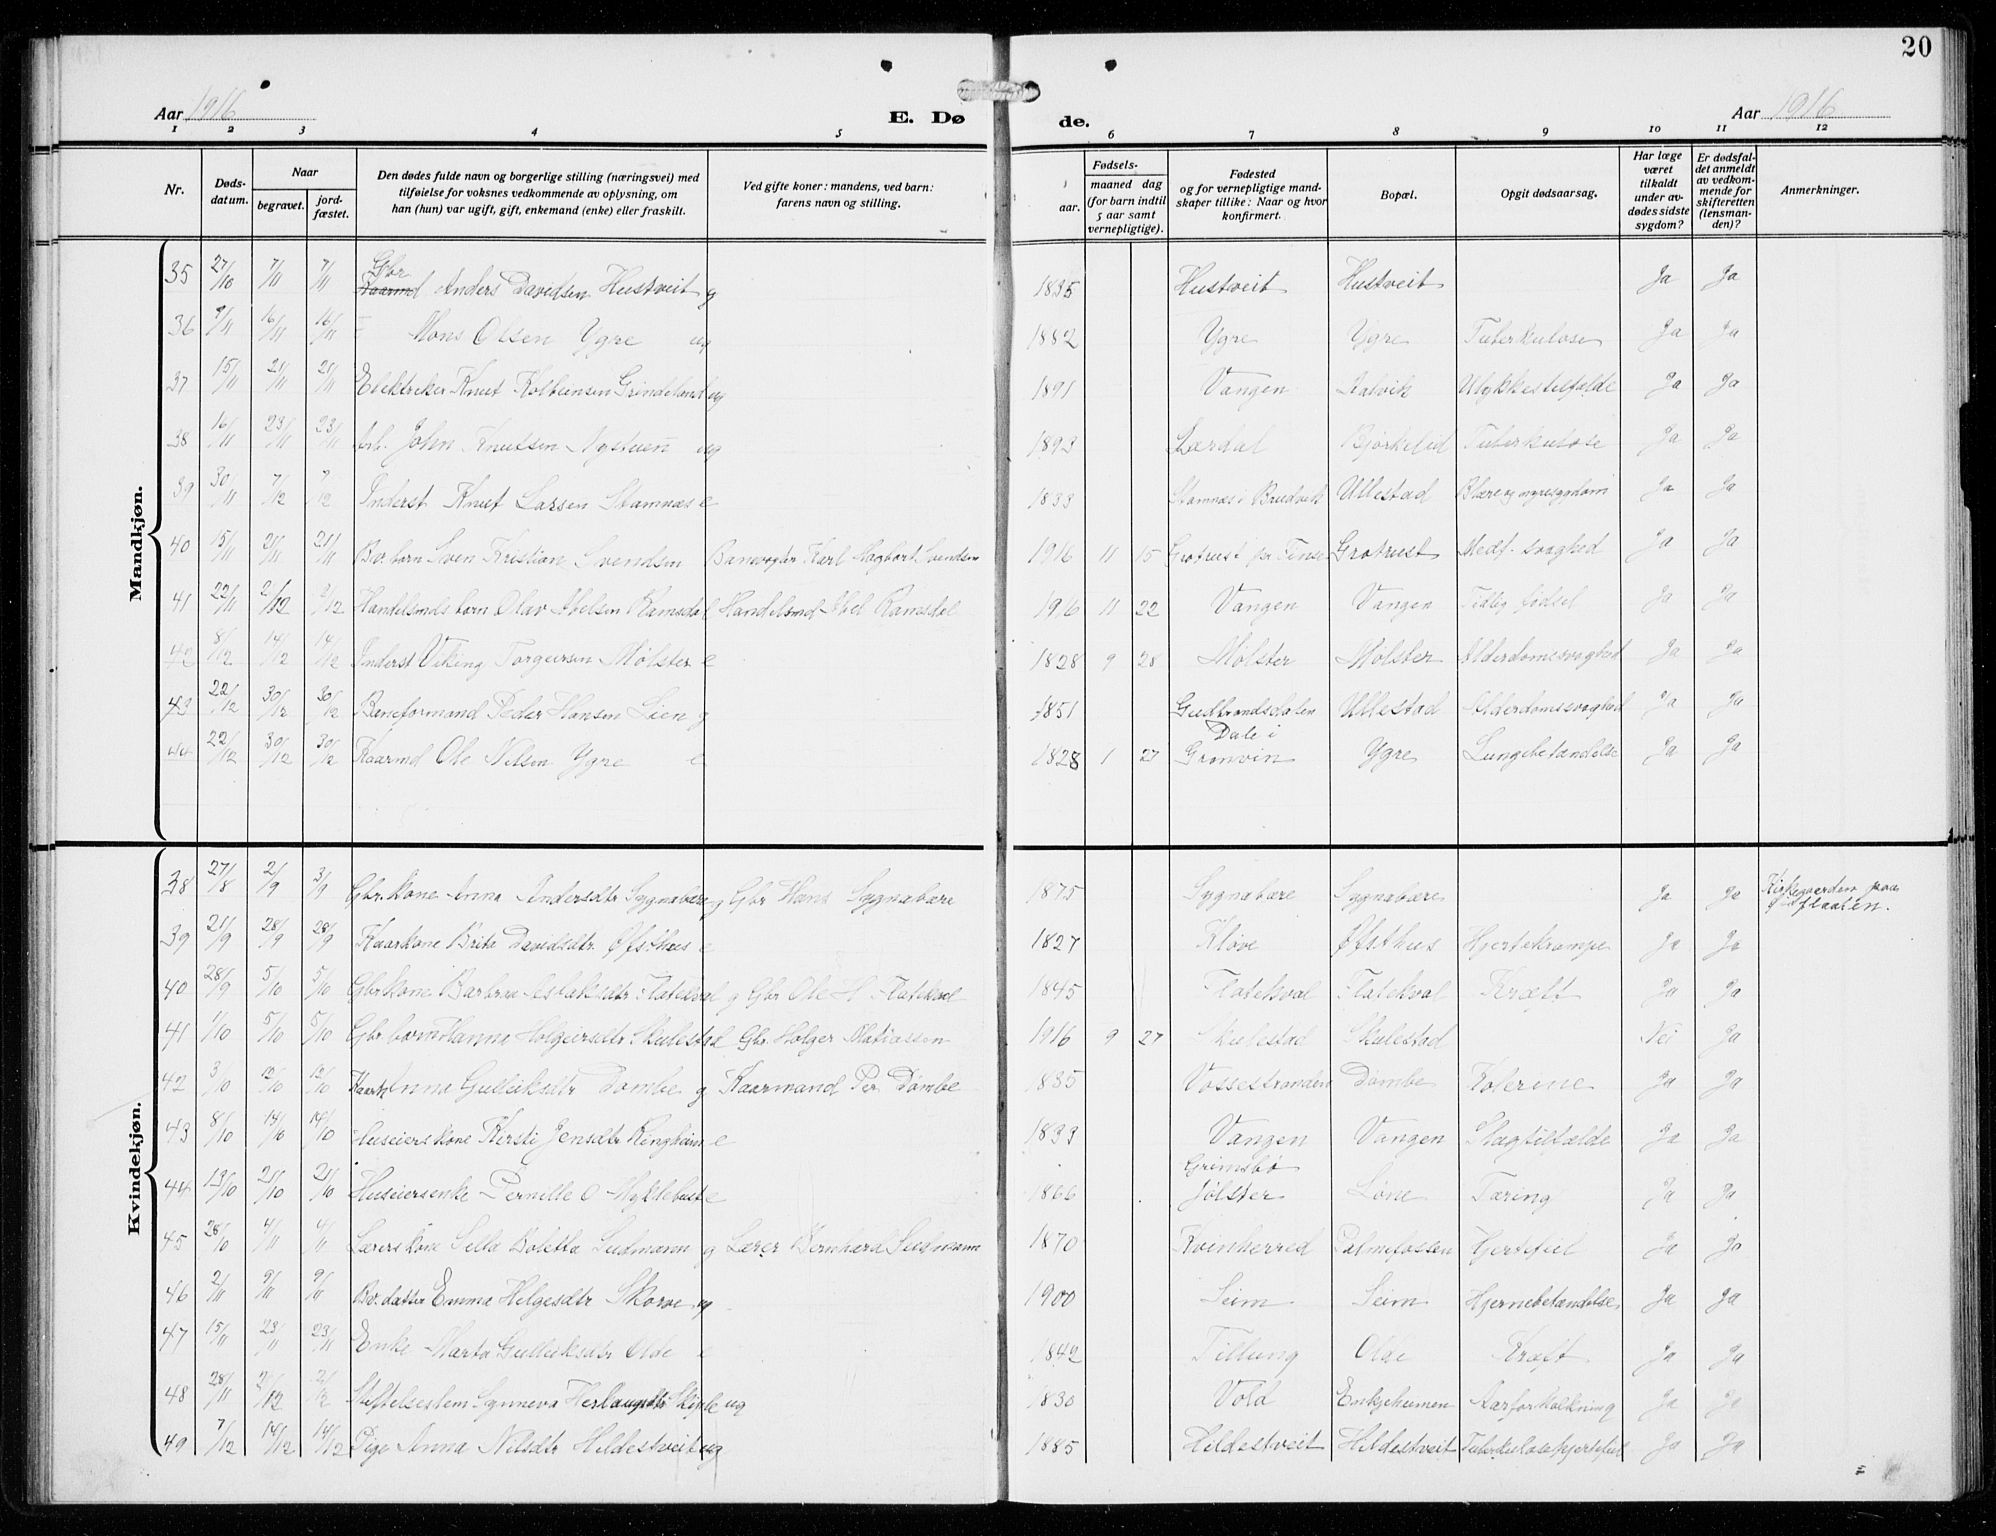 20
Aar 1916
E. Dø
de.
Aar 1916
1 2 3 4 5 6 7 8 9 10 11 12
Nr.
Døds-datum.
Naar
begravet.
jord-fæstet.
Den dødes fulde navn og borgerlige stilling (næringsvei) med tilføielse for voksnes vedkommende av oplysning, om han (hun) var ugift, gift, enkemand (enke) eller fraskilt.
Ved gifte koner: mandens, ved barn: farens navn og stilling.
Fødsels-
aar.
maaned dag (for barn indtil 5 aar samt vernepligtige).
Fødested og for vernepligtige mand-skaper tillike: Naar og hvor konfirmert.
Bopæl.
Opgit dødsaarsag.
Har læge været tilkaldt under av-dødes sidste sygdom?
Er dødsfal-det anmeldt av vedkom-mende for skifteretten (lensman-den)?
Anmerkninger.
Mandkjøn.
35 27/10 7/11 7/11 Gbr Anders Davidsen Hustveit g 1835 Hustveit Hustveit Ja Ja
36 9/11 16/11 16/11 Mons Olsen Ygre ug 1882 Ygre Ygre Tuberkulose Ja Ja
37 15/11 21/11 21/11 Elektriker Knut Kolbeinsen Grindeland ug 1891 Vangen Aalvik Ulykkestilfælde Ja Ja
38 16/11 23/11 23/11 Arb. John Knutsen Nystuen ug 1893 Lærdal Bjørkelid Tuberkulose Ja Ja
39 30/11 7/12 7/12 Inderst Knut Larsen Stamnæs e 1833 Stamnes i Bruvik Ullestad Blære og nyresygdom Ja Ja
40 15/11 21/11 21/11 Bv. barn Sven Kristian Svendsen Banevogter Karl Hagbart Svendsen 1916 11 15 Grotrust pr Finse Grotrust Medf. svaghed Ja Ja
41 22/11 2/12 2/12 Handelsmds barn Olav Abelsen Ramsdal Handelsmd Abel Ramsdal 1916 11 22 Vangen Vangen Tidlig fødsel Ja Ja
42 8/12 14/12 14/12 Inderst Viking Torgeirsen Mølster e 1828 9 28 Mølster Mølster Alderdomssvaghed Ja Ja
43 22/12 30/12 30/12 Baneformand Peder Hansen Lien g 1851 Gudbrandsdalen Ullestad Alderdomssvaghed Ja Ja
44 22/12 30/12 30/12 Kaarmd Ole Nilsen Ygre e 1828 1 27 Dale i Granvin Ygre Lungebetændelse Ja Ja
Kvindekjøn.
38 27/8 2/9 3/9 Gbr. kone Anna Andersdtr Sygnabære g Gbr Hans Sygnabære 1875 Sygnabære Sygnabære Ja Ja Kirkegaarden paa flaaten.
39 21/9 28/9 28/9 Kaarkone Brita Davidsdtr. Øfsthus e 1827 Kløve Øfsthus Hjertekrampe Ja Ja
40 28/9 5/10 5/10 Gbr kone Barbra Aslaksdtr Flatekval g Gbr Ole H Flatekval 1845 Flatekval Flatekval Kræft Ja Ja
41 1/10 5/10 5/10 Gbr. barn Hanna Holgeirsdtr Skulestad Gbr. Holger Matiassen 1916 9 27 Skulestad Skulestad Nei Ja
42 3/10 12/10 12/10 Kaark Anna Gulleiksdtr Dømbe g Kaarmand Per Dømbe 1835 Vossestranden Dømbe Kolerine Ja Ja
43 8/10 14/10 14/10 Huseierskone Kersti Jensdtr Ringheim e 1833 Vangen Vangen Slagtilfælde Ja Ja
44 13/10 21/10 21/10 Huseiersenke Pernille O Myklebust e 1866 Grimsbø Jølster Løne Tæring Ja Ja
45 28/10 4/11 4/11 Lærerskone Sella Boletta Sudmann g Lærer Bernhard Sudmann 1870 Kvinherred Palmafossen Hjertefeil Ja Ja
46 2/11 9/11 9/11 Bv. datter Emma Helgesdtr Skorve ug 1900 Seim Seim Hjernebetændelse Ja Ja
47 15/11 23/11 23/11 Enke Marta Gulleiksdtr Olde e 1842 Tillung Olde Kræft Ja Ja
48 28/11 2/12 2/12 Stiftelseslem Synneva Herlaugsdtr Skiple ug 1830 Vold Enkjeheimen Aarforkalkning Ja Ja
49 7/12 14/12 14/12 Pige Anna Nilsdtr Hildestveit ug 1885 Hildestveit Hildestveit Tuberkulose hjertefeil Ja Ja